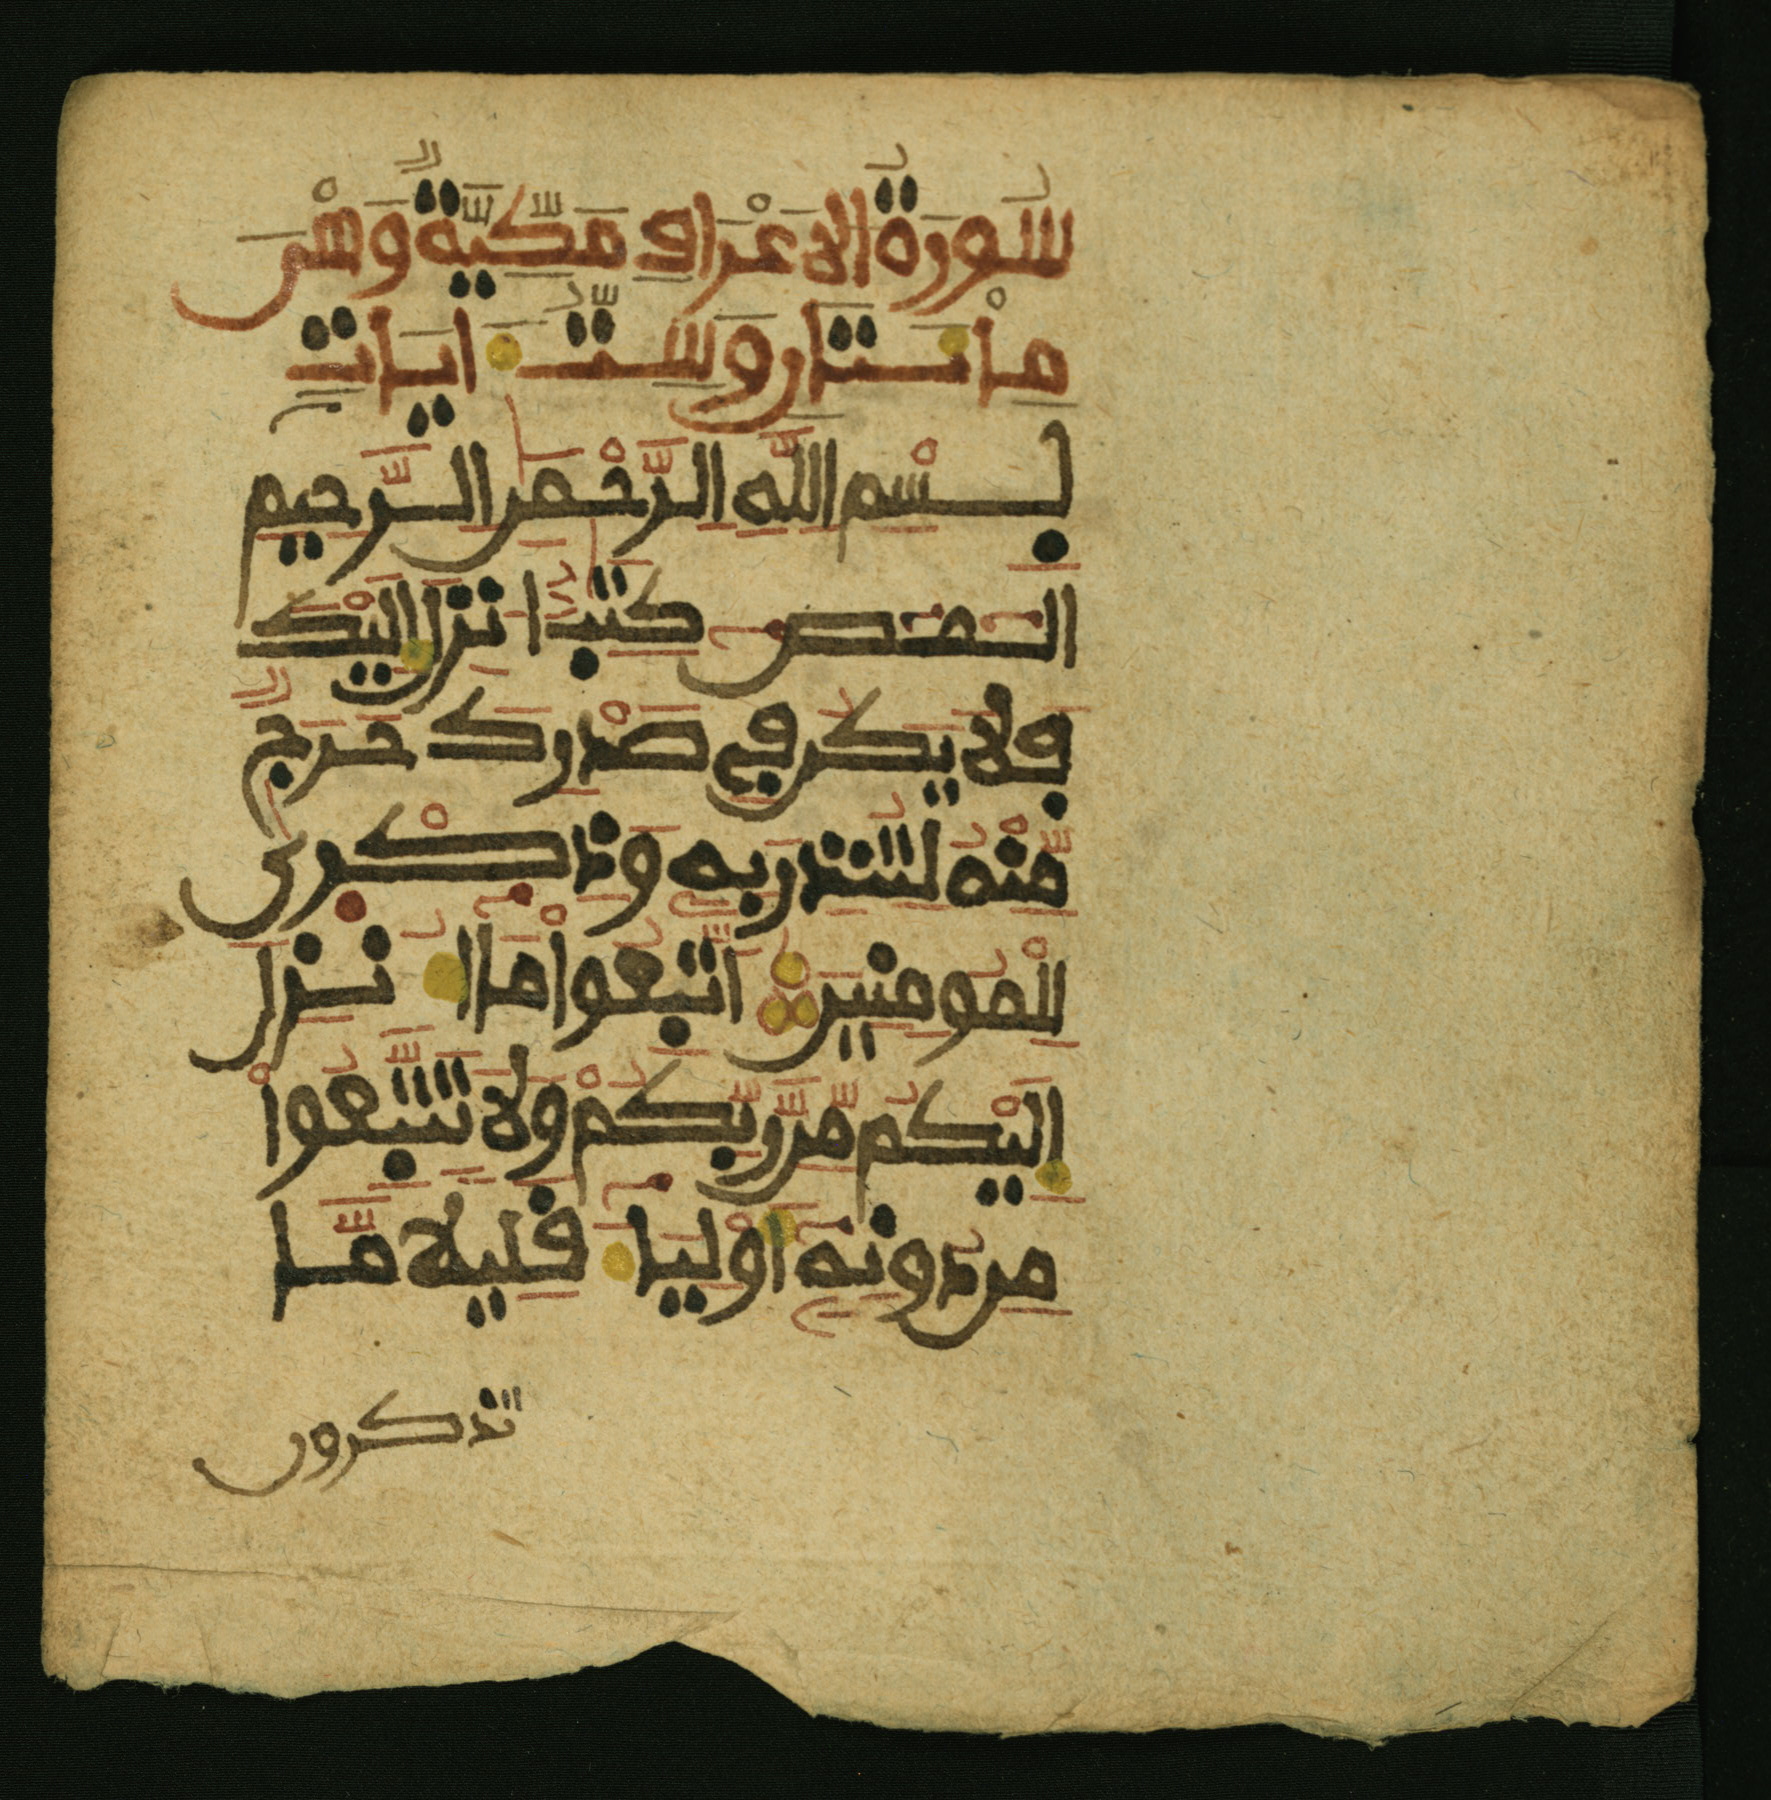 سُورَةُ الَاعْرَافِ مَكِّيَّةٌ وَهْيَ
مِائَتَانِ وَسِتُّ ءَايَاتٍ
بِسْمِ اللَّهِ الرَّحْمَٰنِ الرَّحِيمِ
الٓمٓصٓ كِتَٰبٌ انزِلَ إِلَيْكَ
فَلَا يَكُن فِي صَدْرِكَ حَرَجٌ
مِّنْهُ لِتُنذِرَ بِهِ وَذِكْرَىٰ
لِلْمُومِنِينَ اتَّبِعُواْ مَا أُنزِلَ
إِلَيْكُم مِّن رَّبِّكُمْ وَلَا تَتَّبِعُواْ
مِن دُونِهِ أَوْلِيَا قَلِيلا مَّا
تذكرون